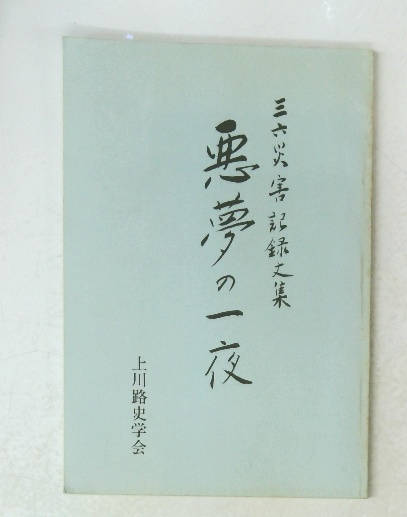 三六災害記録文集
悪夢の一夜
上川路史学会